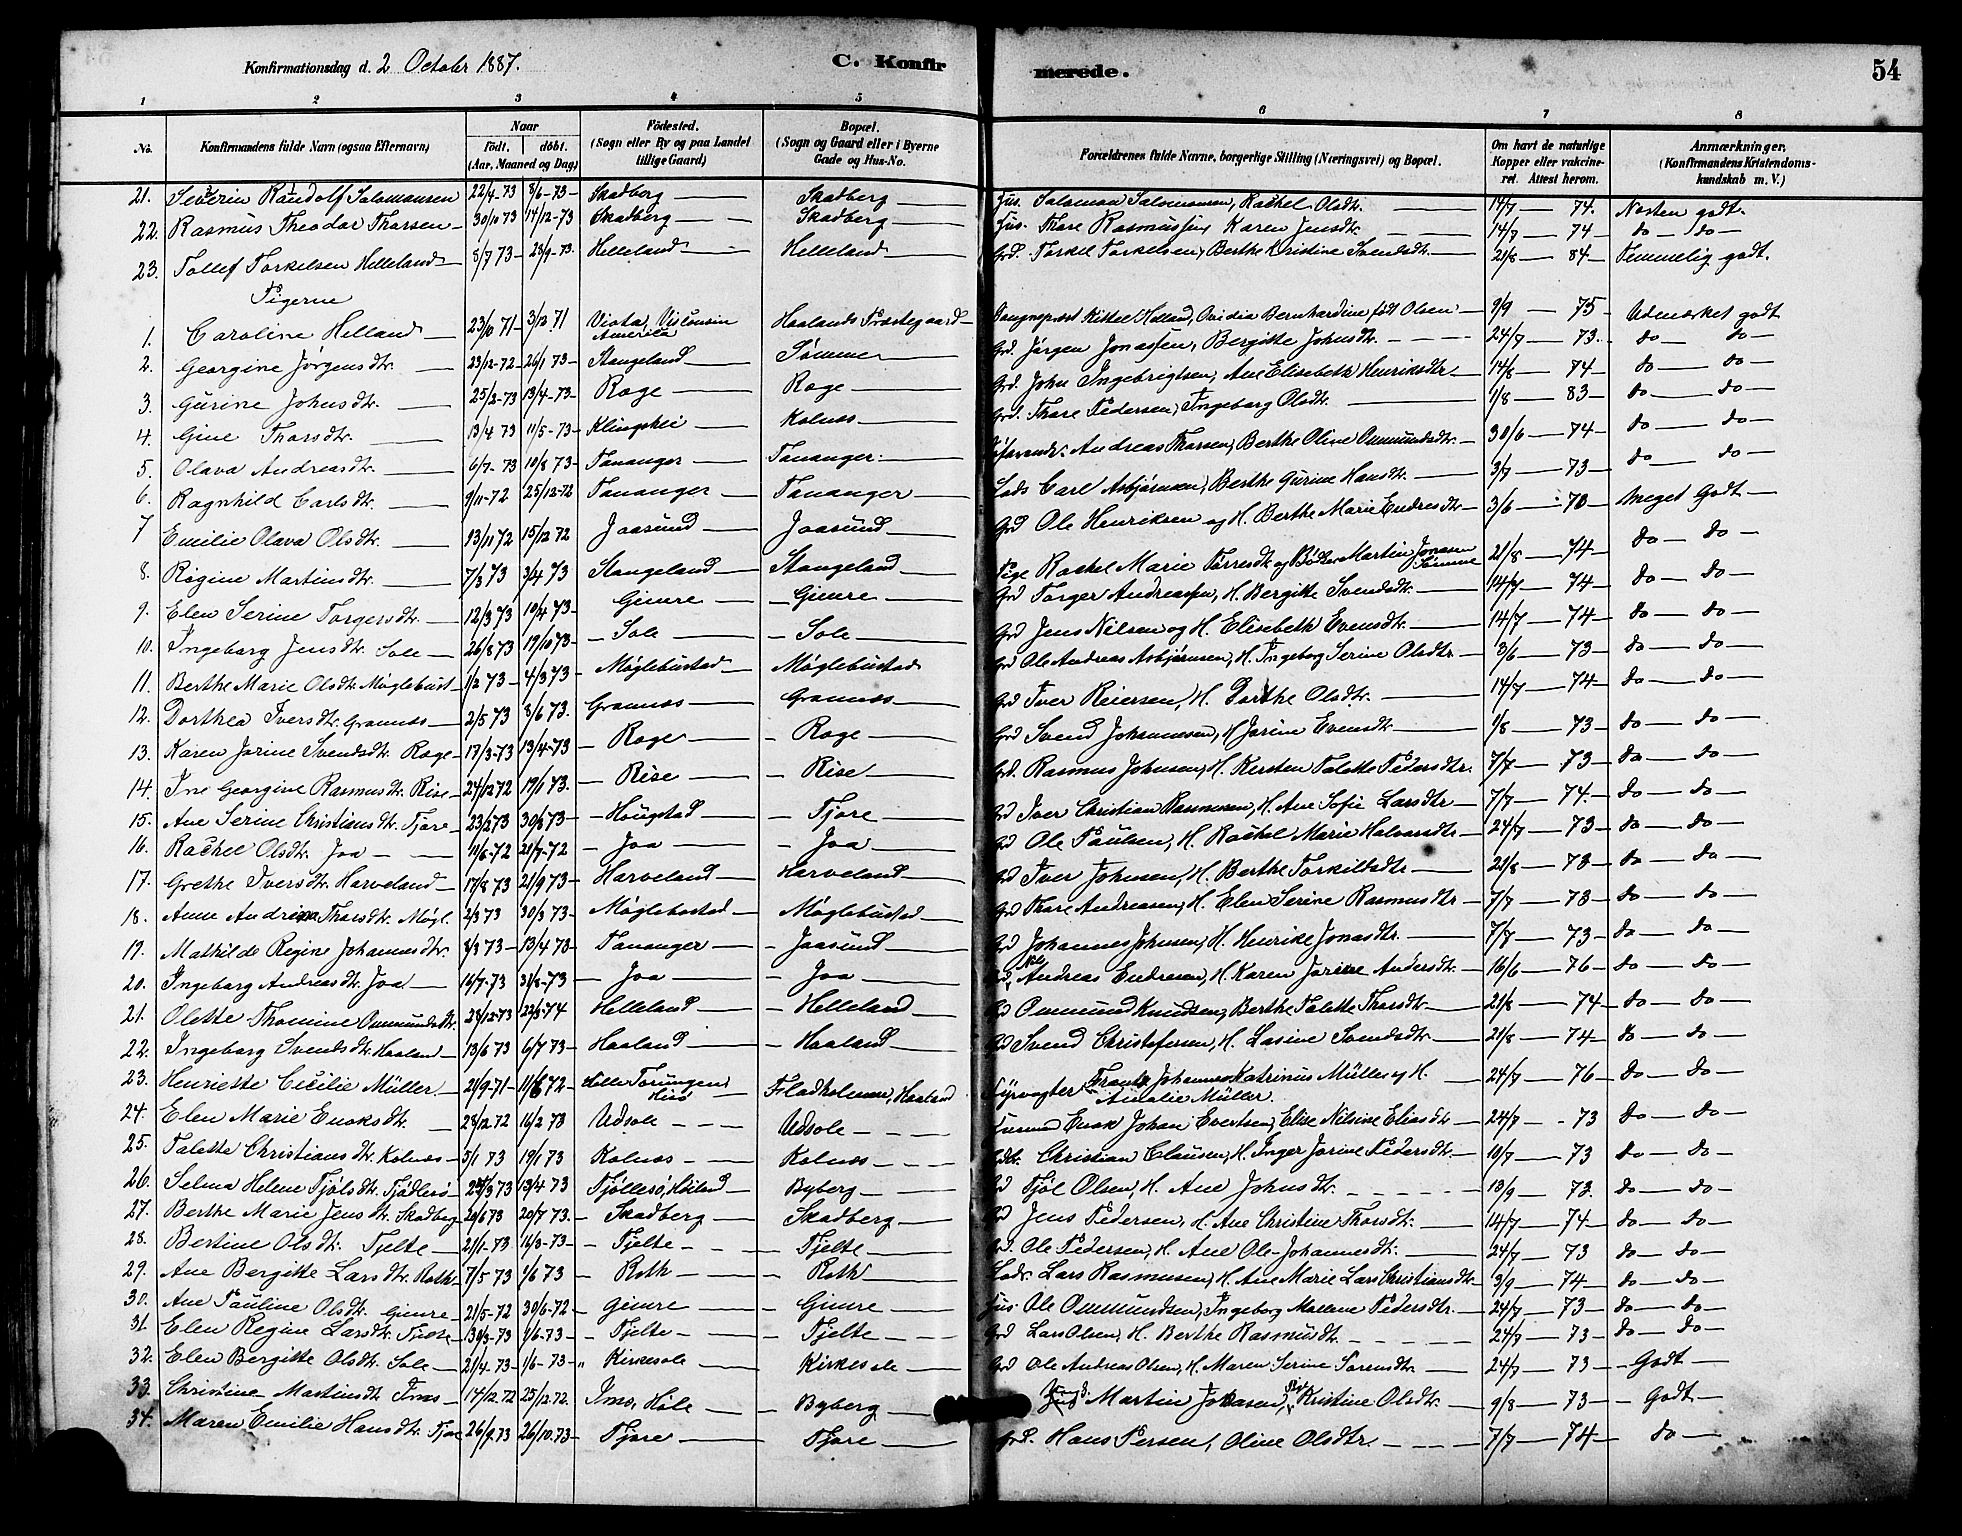 Konfirmationsdag d. 2 October 1887. C. Konfirmerede. 54
1 2 3 4 5 6 7 8
No. Konfirmandens fulde Navn (ogsaa Efternavn) Naar født. døbt. (Aar, Maaned og Dag) Fødested. (Sogn eller By og paa Landet tillige Gaard) Bopæl. (Sogn og Gaard eller i Byerne Gade og Hus-No.) Forældrenes fulde Navne, borgerlige Stilling (Næringsvei) og Bopæl. Om havt de naturlige Kopper eller vakcineret. Attest herom. Anmærkninger. (Konfirmandens Kristendomskundskab m. V.)
21. Severin Randolf Salomonsen 22/4-73 8/6-73 Skadberg Skadberg Hus. Salomon Salomonsen, Rachel Olsdt. 14/7 74. Næsten godt.
22. Rasmus Theodor Thorsen 30/10 73 14/12-73 Skadberg Skadberg Hus. Thore Rasmussen, Karen Jensdt. 14/7 74 do do
23. Tollef Torkelsen Helleland 8/7 73 28/9-73. Helleland Helleland Grd. Torkel Torkelsen, Berthe Kristine Svendsdt. 21/8 84 Temmelig godt.
Pigerne
1. Caroline Helland 23/10 71 3/12 71 Viota, Visconsin America Haalands Præstegaard Sougneprest Kittel Helland, Ovidia Bernhardine født Olsen 9/9 75 Udmærket godt
2. Georgine Jørgensdtr. 23/12-72 26/1 73 Stangeland Sømme Grd. Jørgen Jonassen, Bergitte Johnsdt. 24/7 73. do do
3. Gurine Johnsdtr. 25/2-73 13/4-73 Roge Roge Grd. John Ingebrigtsen, Ane Elisebeth Henriksdtr 14/8 74 do do
4. Gine Thorsdtr. 13/4 73 11/5-73 Klingshei Kolnes Grd. Thore Pedersen, Ingeborg Olsdt. 1/8 83 do do
5. Olava Andreasdtr. 6/7-73 10/8 73 Tananger Tananger. Andreas Thorsen, Berthe Oline Ommundsdt. 30/6 74 do do
6. Ragnhild Carlsdtr. 9/11-72 25/12-72 Tananger Tananger Lods Carl Asbjørnsen, Berthe Gurine Hansdt. 3/7 73 do do
7 Emilie Olava Olsdtr. 13/11 72 15/12 72 Jaasund Jaasund Grd Ole Henriksen og H. Berthe Marie Endresdt 3/6 73 Meget Godt
8. Regine Martinsdtr. 7/3 73 3/4 73 Stangeland Stangeland Pige Rachel Marie Torresdt og Martin Jonasen Sømme 21/8 74 do do
9. Elen Serine Torgersdtr. 12/3 73 10/4 73 Gimre Gimre Grd Torger Andreassen, H. Bergitte Svendsdt. 14/7 74 do do
10. Ingeborg Jensdtr. Sole 26/8 73 19/10 73 Sole Sole Grd Jens Nilsen og H. Elisebeth Evensdt. 14/7 74 do do
11. Berthe Marie Olsdtr. Møglebust 1/2 73 4/3 73 Møglebustad Møglebustad Grd Ole Andreas Asbjørnsen, H. Ingeborg Serine Olsdtr 3/6 73 do do
12. Dorthea Iversdtr. Grannes 2/5 73 8/6 73. Grannes Grannes Grd Iver Reiersen, H. Dorthe Olsdtr. 14/7 74 do do
13. Karen Jorine Svendsdtr. Roge 17/3-73 13/4-73 Roge Roge Grd Svend Johannesen, H Jorine Evensdt. 1/8 73 do do
14. Ine Georgine Rasmusdtr. Rise 24/12 72 19/1 73. Rise Rise Grd. Rasmus Johnsen, H. Kersten Talette Pedersdtr. 7/7 73 do do
15. Ane Serine Christiansdtr. Tjore 23/2 73 30/3 73 Hougstad Tjore Grd Iver Christian Rasmusen, H. Ane Sofie Larsdtr 7/7 74. do do
16. Rachel Olsdtr. Joa 11/6-72 21/7-72 Joa Joa Grd Ole Paulsen, H. Rachel Marie Halvorsdtr 24/7 73 do do
17. Grethe Iversdtr. Harveland 17/8 73 21/9 73 Harveland Harveland Grd Iver Johnsen, H. Berthe Torkildsdtr 21/8 73 do do
18. Anne Andrina Thorsdtr. Møgl. 2/3 73 30/3 73 Møglebostad Møglebustad Grd Thore Andreasen, H. Elen Serine Rasmusdtr 7/7 73 do do
19. Mathilde Regine Johannesdtr. 8/3 73 13/4 73 Tananger Jaasund Grd Johannes Johnsen, H. Henrike Jonasdtr. 7/7 73 do do
20. Ingeborg Andreasdtr. Joa 16/7-73 31/8-73 Joa Joa Grd. Andreas Endresen, H. Karen Jorine Andersdt. 16/6 76 do do
21. Olette Thomine Ommundsdtr. 28/12-73 22/3-74 Helleland Helleland Grd Ommund Knudsen, Berthe Talette Thorsdtr. 21/8 74 do do
22. Ingeborg Svendsdtr. Haaland 13/6 73 6/7 73 Haaland Haaland Grd Svend Christofersen, H. Lasine Svendsdtr. 21/8 74 do do
23. Henriette Cecilie Müller 21/9-71 11/6 72 Helle Torungen Hisø Fladholmen, Haaland Fyrvogter Frantz Johannes Katrinus Müller og H. Amalie Müller. 24/7 76 do do
24. Elen Marie Enoksdtr. 28/12 72 16/2 73 Udsole Udsole Enok Johan Evertsen, Elise Nilsine Eliasdtr 24/7 73 do do
25. Talette Christiansdtr. Kolnes 5/1 73 19/1 73 Kolnes Kolnes Christian Clausen, H. Inger Jorine Pedersdt. 10/7 73 do do
26. Selma Helene Tjølsdtr. 13/4 73 Høiland Byberg Grd Tjøl Olsen, H. Ane Johnsdtr. 13/9 73. do do
27. Berthe Marie Jensdtr. Skadberg 20/6 73 20/7 73. Skadberg Skadberg Grd Jens Pedersen, H. Ane Christine Thorsdt. 14/7 74 do do
28. Bertine Olsdtr. Tjelte 21/1-73 16/3-73 Tjelte Tjelte Grd. Ole Pedersen, H. Ane Ole-Johannesdtr. 24/7 73 do do
29. Ane Bergitte Larsdtr. Roth 7/5 73 1/6 73 Roth Roth Lars Rasmusen, H. Ane Marie Lars Christiansdtr 3/9 74 do do
30. Ane Pauline Olsdtr. Gimre 21/5-72 30/6-72 Gimre Gimre Hus. Ole Ommundsen, Ingeborg Mallene Pedersdtr. 24/7 73 do do
31. Elen Regine Larsdtr. Tjelte 30/3-73 1/6-73 Tjelte Tjelte Grd Lars Olsen, H. Berthe Rasmusdt. 24/7 73 do do
32. Elen Bergitte Olsdtr. Sole 21/4-73 1/6-73 Kirkesole Kirkesole Grd Ole Andreas Olsen, H. Maren Serine Sørensdt. 24/7 73 Godt
33. Christine Martinsdt. Ims 14/12 72 25/12 72. Ims, Høle Byberg Martin Johasen, Kristine Olsdtr. 9/8 73 Godt
34. Maren Emilie Hansdtr. Tjore 26/9 73 26/10.73 Tjore Tjore Grd. Hans Persen, Oline Olsdtr. 7/7 74 do